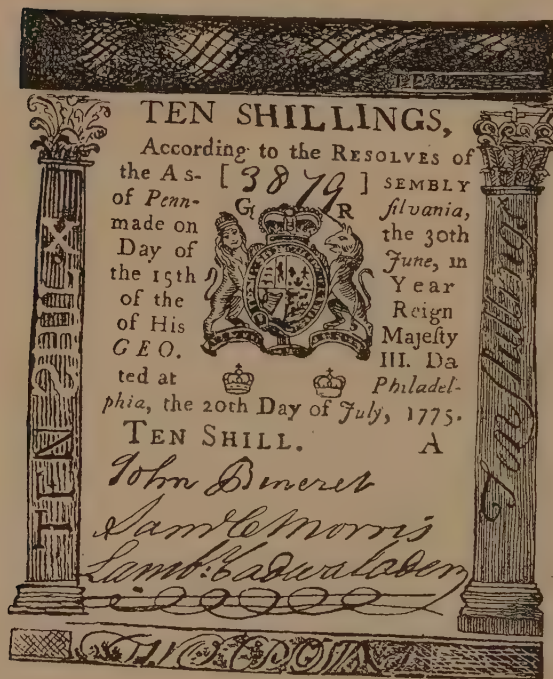 TEN SHILLINGS,
According to the RESOLVES of
the As- [3879] SEMBLY
of Penn- G R ſilvania,
made on the 30th
Day of June, in
the 15th Year
of the Reign
of His Majeſty
GEO. III. Da
ted at Philadel-
phia, the 20th Day of July, 1775.
TEN SHILL. A
John
Saml. C Morris
Lamb. Cadwalader
Ten ſhillings